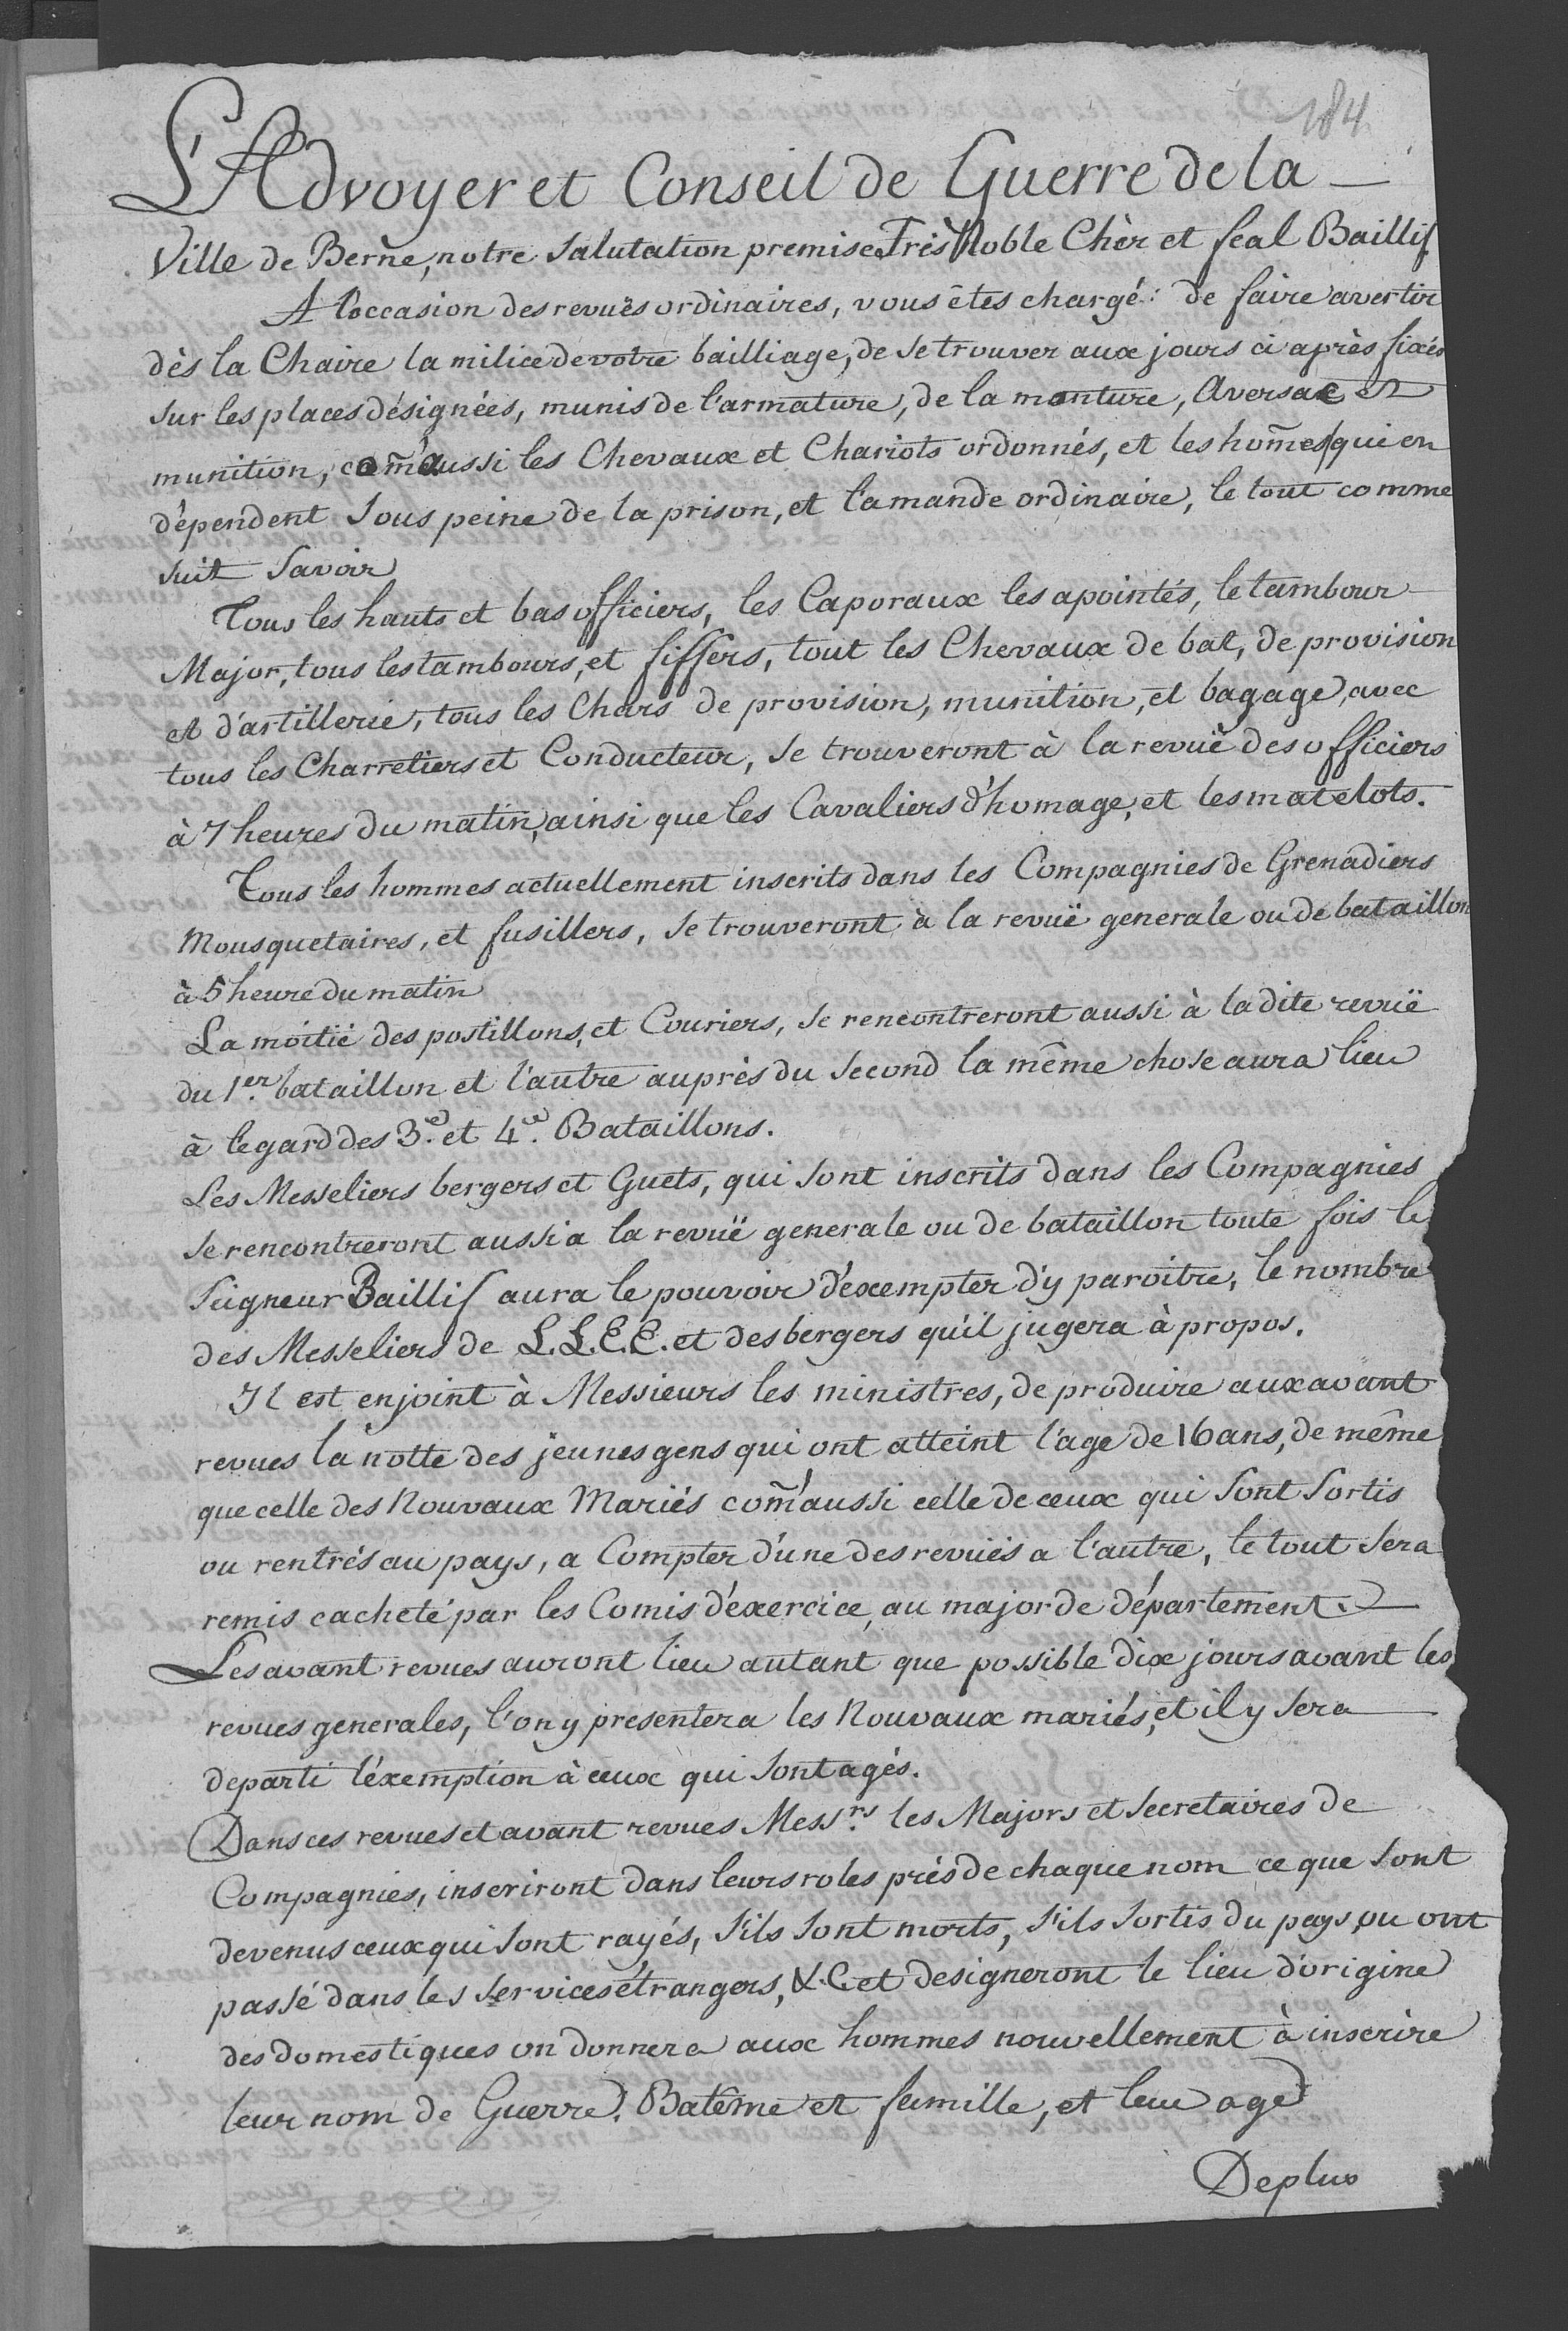 184
L'Advoyer et Conseil de Guerre de la
Ville de Berne, notre Salutation premise Très Noble Chèr et feal Baillif
A l'occasion des revuës ordinaires, vous êtes chargé: de faire avertir
dès la Chaire la milice de votre bailliage, de se trouver aux jours ci après fixés
sur les places désignées, munis de l'armature, de la monture, Aversac et
munition, com̃'aussi les Chevaux et Chariots ordonnés, et les hom̃es qui en
dépendent sous peine de la prison, et l'amande ordinaire, le tout comme
suit Savoir
Tous les hauts et bas officiers, les Caporaux les apointés, le tambour
Major, tous les tambours, et fiffers, tout les Chevaux de bat, de provision
et d'artillerie, tous les Chars de provision, munition, et bagage, avec
tous les Charretiers et Conducteur, se trouveront à la revuë des officiers
à 7 heures du matin, ainsi que les Cavaliers d'homage, et les matelots.
Tous les hommes actuellement inscrits dans les Compagnies de Grenadiers
Mousquetaires, et fusillers, se trouveront à la revuë generale ou de bataillon
à 5 heure du matin
La moitié des postillons, et Couriers, se rencontreront aussi à la dite revuë
du 1er. bataillon et l'autre auprès du second la même chose aura lieu
à l'egard des 3e. et 4e. Bataillons.
Les Messeliers bergers et Guets, qui sont inscrits dans les Compagnies
se rencontreront aussi a la revuë generale ou de bataillon toute fois le
Seigneur Baillif aura le pouvoir d'exempter d'y paroitre, le nombre
des Messeliers de L.L.E.E. et des bergers qu'il jugera à propos.
Il est enjoint à Messieurs les ministres, de produire aux avant
revues la notte des jeunes gens qui ont atteint l'age de 16 ans, de même
que celle des Nouvaux Mariés com̃'aussi celle de ceux qui sont sortis
ou rentrés au pays, a Compter d'une des revuës a l'autre, le tout sera
remis cacheté par les Comis d'exercice, au major de département.
Les avant revues auront lieu autant que possible dix jours avant les
revues generales, l'on y presentera les Nouvaux mariés, et il y sera
departi l'éxemption à ceux qui sont agés.
Dans ces revues et avant revues Messrs. les Majors et secretaires de
Compagnies, inscriront dans leurs roles près de chaque nom ce que sont
devenus ceux qui sont rayés, s'ils sont morts, s'ils sortis du pays, ou ont
passé dans les services étrangers, &.C. et designeront le lieu d'origine
des domestiques on donnera aux hommes nouvellement à inscrire
leur nom de Guerre, Batême et famille, et leur age
De plus